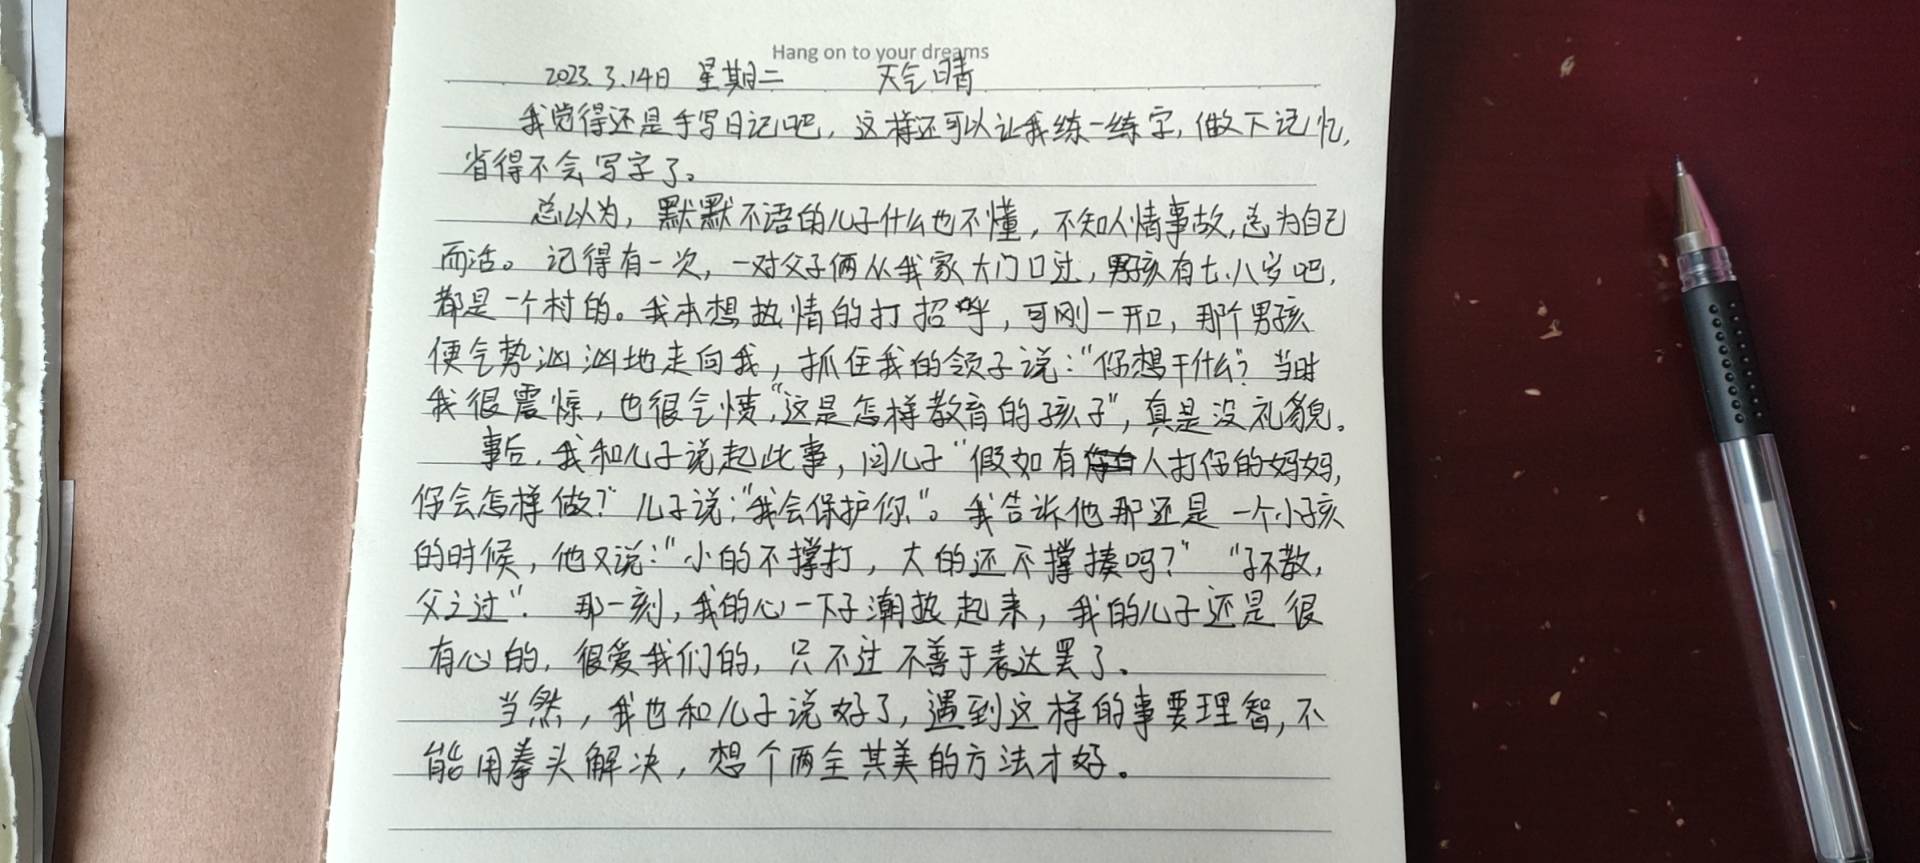 Hang on to your dreams
2023.3.14日 星期二 天气晴
我觉得还是手写日记吧，这样还可以让我练一练字，做下记忆，
省得不会写字了。
总以为，默默不语的儿子什么也不懂，不知人情事故，总为自己
而活。记得有一次，一对父子俩从我家大门口过，男孩有七、八岁吧，
都是一个村的。我本想热情的打招呼，可刚一开口，那个男孩
便气势汹汹地走向我，抓住我的领子说：“你想干什么？当时
我很震惊，也很气愤，“这是怎样教育的孩子”，真是没礼貌。
事后，我和儿子说起此事，问儿子“假如有人打你的妈妈，
你会怎样做？”儿子说：“我会保护你”。我告诉他那还是一个小孩
的时候，他又说：“小的不撑打，大的还不撑揍吗？”“子不教，
父之过”. 那一刻，我的心一下子潮热起来，我的儿子还是很
有心的，很爱我们的，只不过不善于表达罢了。
当然，我也和儿子说好了，遇到这样的事要理智，不
能用拳头解决，想个两全其美的方法才好。